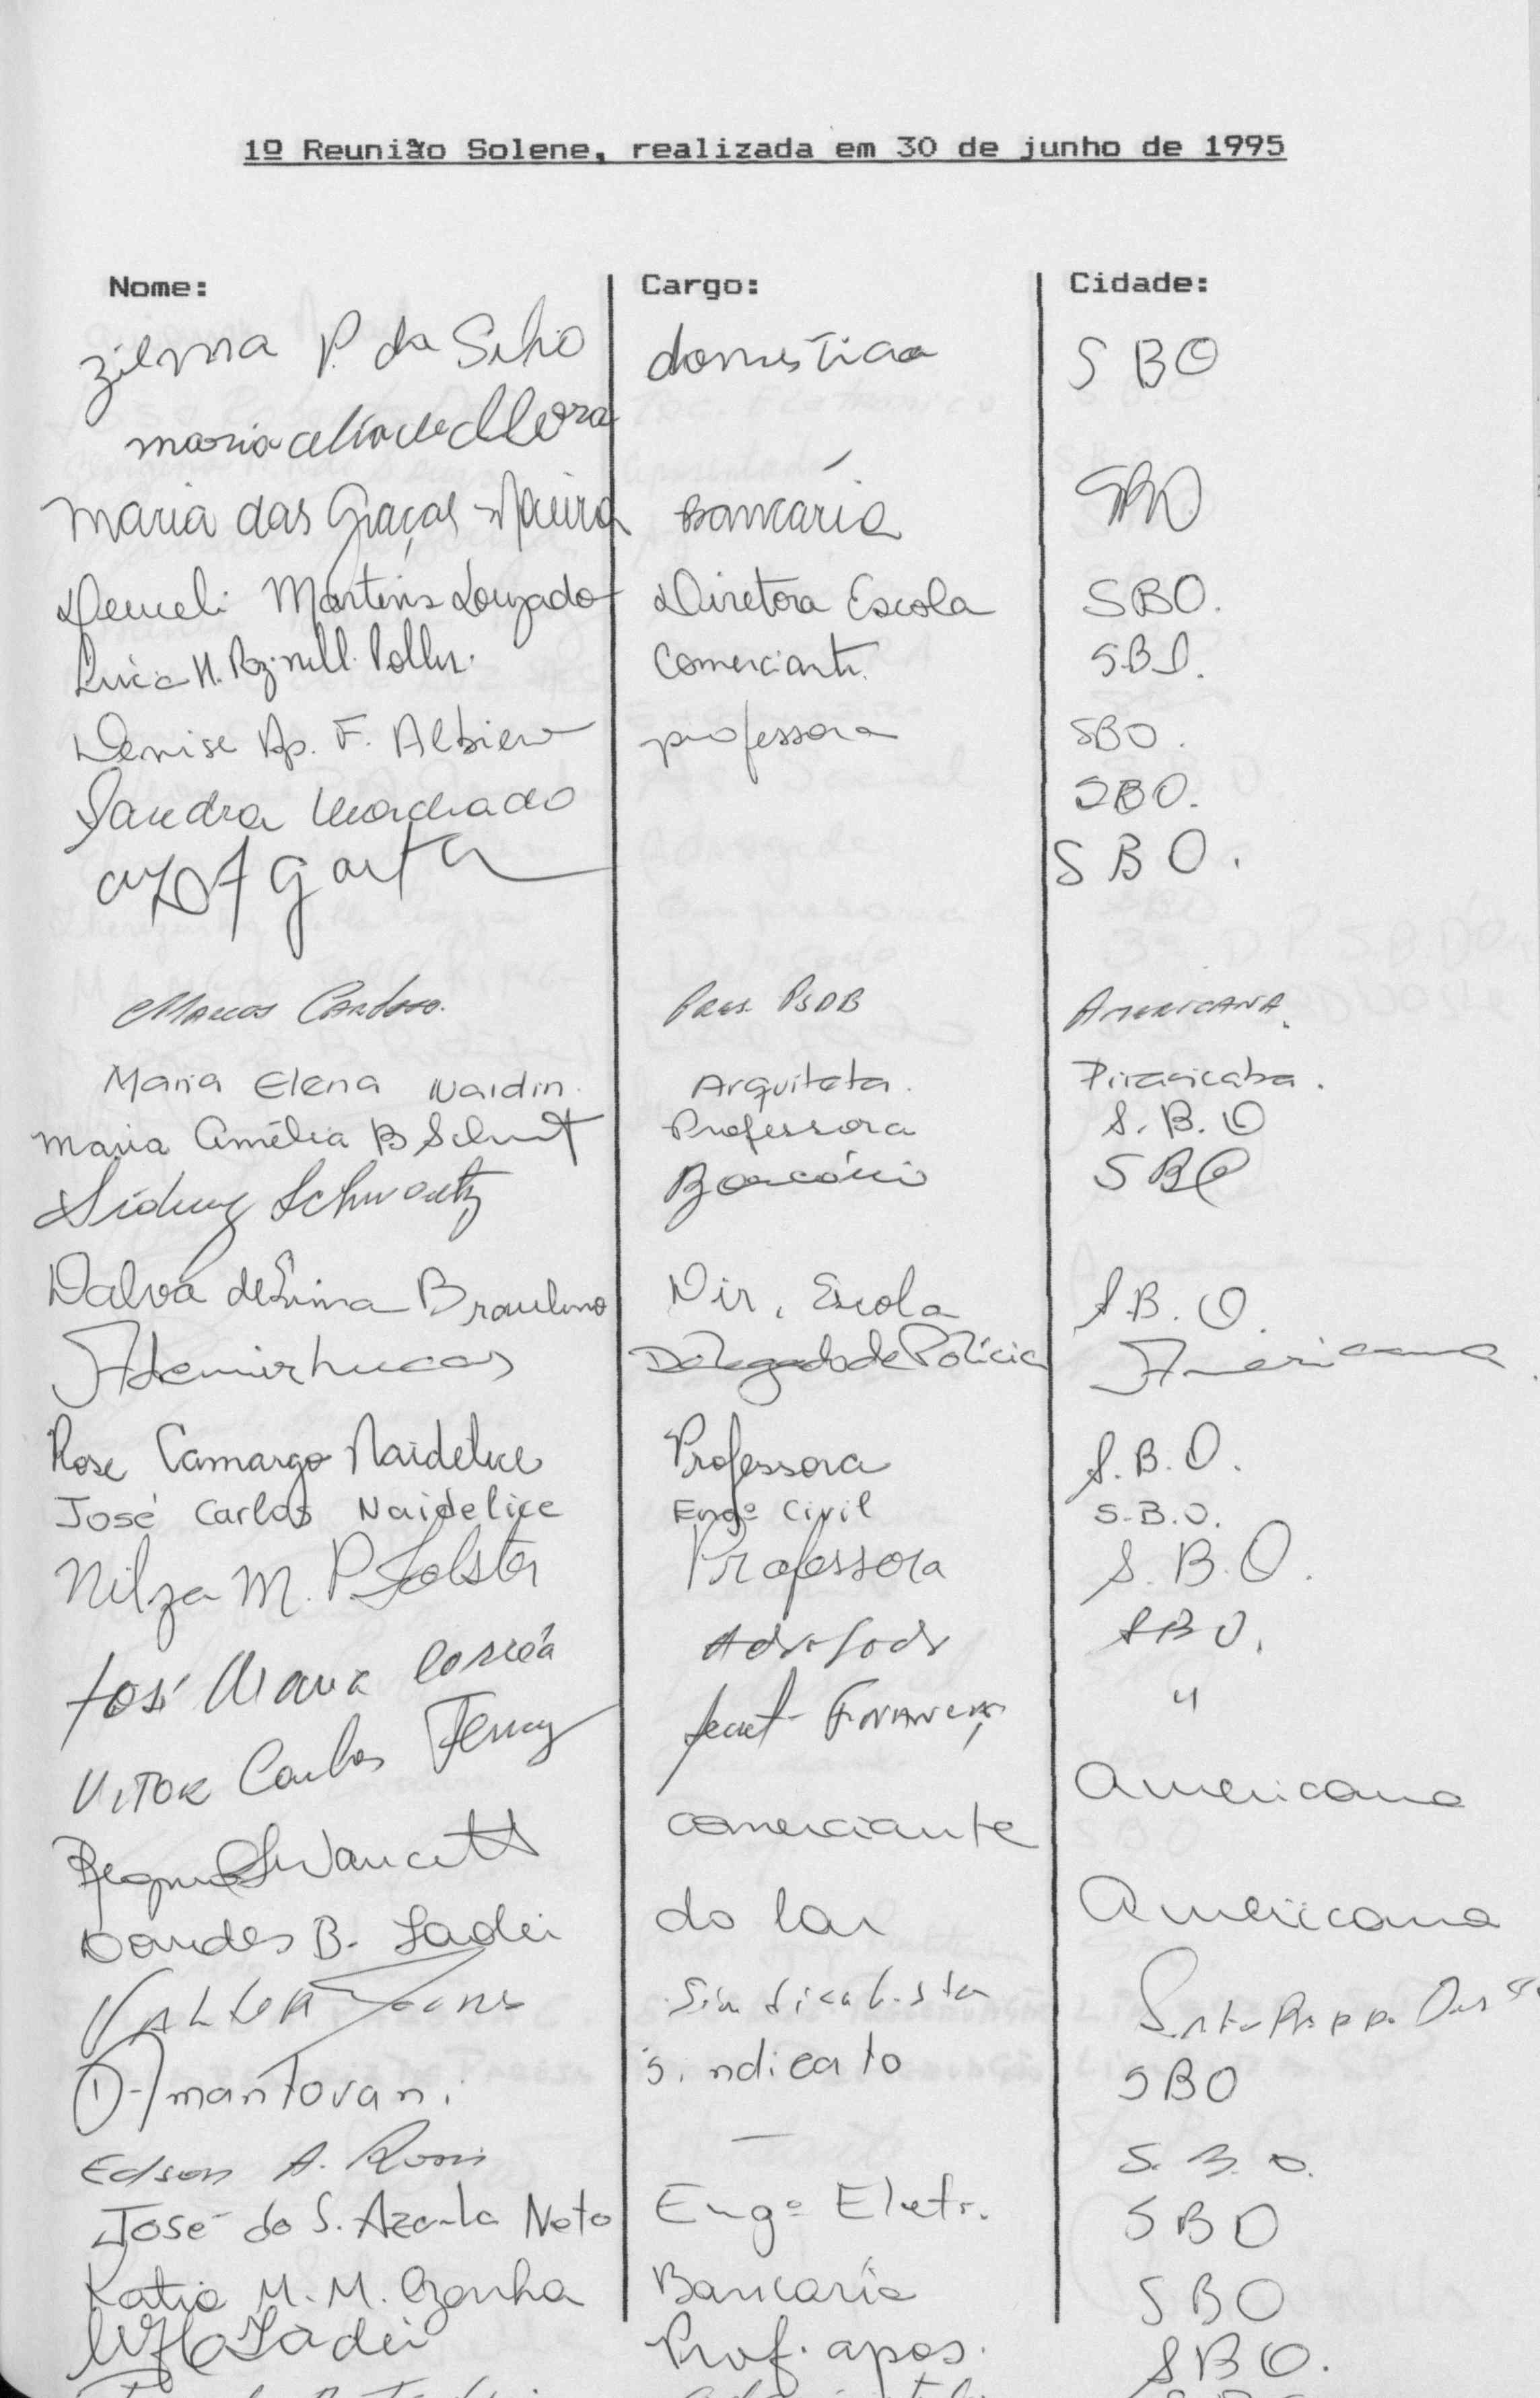 1º Reunião Solene, realizada em 30 de junho de 1995
Nome: Cargo: Cidade:
Zilma P. da Silva domestica SBO
Maria
Maria das Graças Bancária SBO
Martins Louzado Diretora Escola SBO.
Lucia H. Comerciante S.B.O.
Denise Ap. F. Albiero professora SBO.
Sandra Machado SBO.
SBO.
Marcos Cardoso. Pres. PSDB Americana.
Maria Elena Nardin. Arquiteta. Piracicaba.
Maria Amélia B Professora S.B.O
Sidney Schwartz Bancário SBO
Dalva de Lima Braulino Dir. Escola S.B.O.
Ademir Lucas Delegado de Polícia Americana
Rose Camargo Naidelice Professora S.B.O.
José Carlos Naidelice Engº Civil S.B.O.
Nilza M. P. Professora S.B.O.
José Maria Corrêa Advogado SBO.
Vitor Carlos Finanças "
comerciante Americana
Lourdes B. Sadei do lar Americana
Valter Sindicalista
Mantovani Sindicato SBO
Edson A. — S.B.O.
José do S. Neto Engº Eletr. SBO
Katia M. M. Bancária SBO
Prof. apos. SBO.